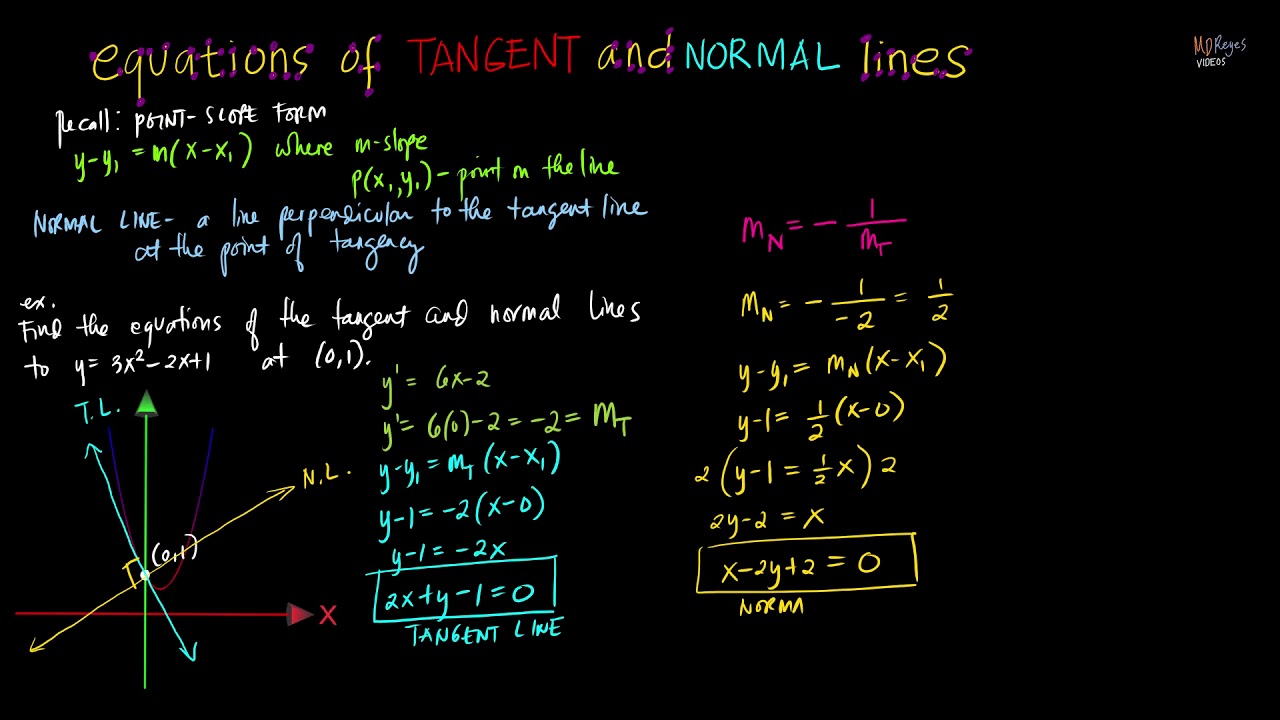 equations of TANGENT and NORMAL lines
MDReyes
VIDEOS
Recall: POINT-SLOPE FORM
y-y₁ = m(x-x₁) where m-slope
P(x₁,y₁)-point on the line
NORMAL LINE- a line perpendicular to the tangent line
at the point of tangency
ex.
Find the equations of the tangent and normal lines
to y=3x²-2x+1 at (0,1).
T.L.
N.L.
(0,1)
X
y' = 6x-2
y'= 6(0)-2=-2= m_T
y-y₁ = m_T (x-x₁)
y-1=-2(x-0)
y-1=-2x
2x+y-1=0
TANGENT LINE
m_N = - 1/m_T
m_N = - 1/-2 = 1/2
y-y₁ = m_N(x-x₁)
y-1= 1/2(x-0)
2(y-1 = 1/2x)2
2y-2 = x
x-2y+2=0
NORMA